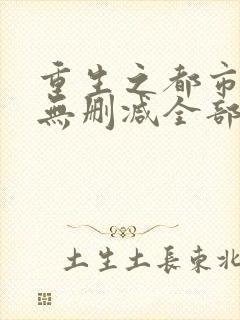 重生之都市
無刪減全部
土生土長東北